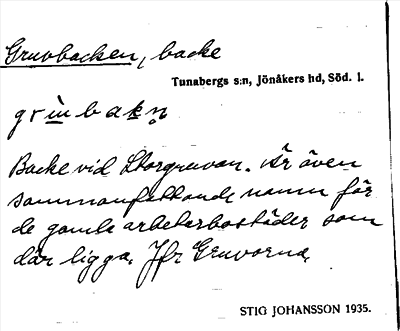 Gruvbacken, backe
Tunabergs s:n, Jönåkers hd, Söd. l.
grùbakn̥
Backe vid Storgruvan. Är även
sammanfattande namn för
de gamla arbetarbostäder som
där ligga. Jfr Gruvorna.
STIG JOHANSSON 1935.